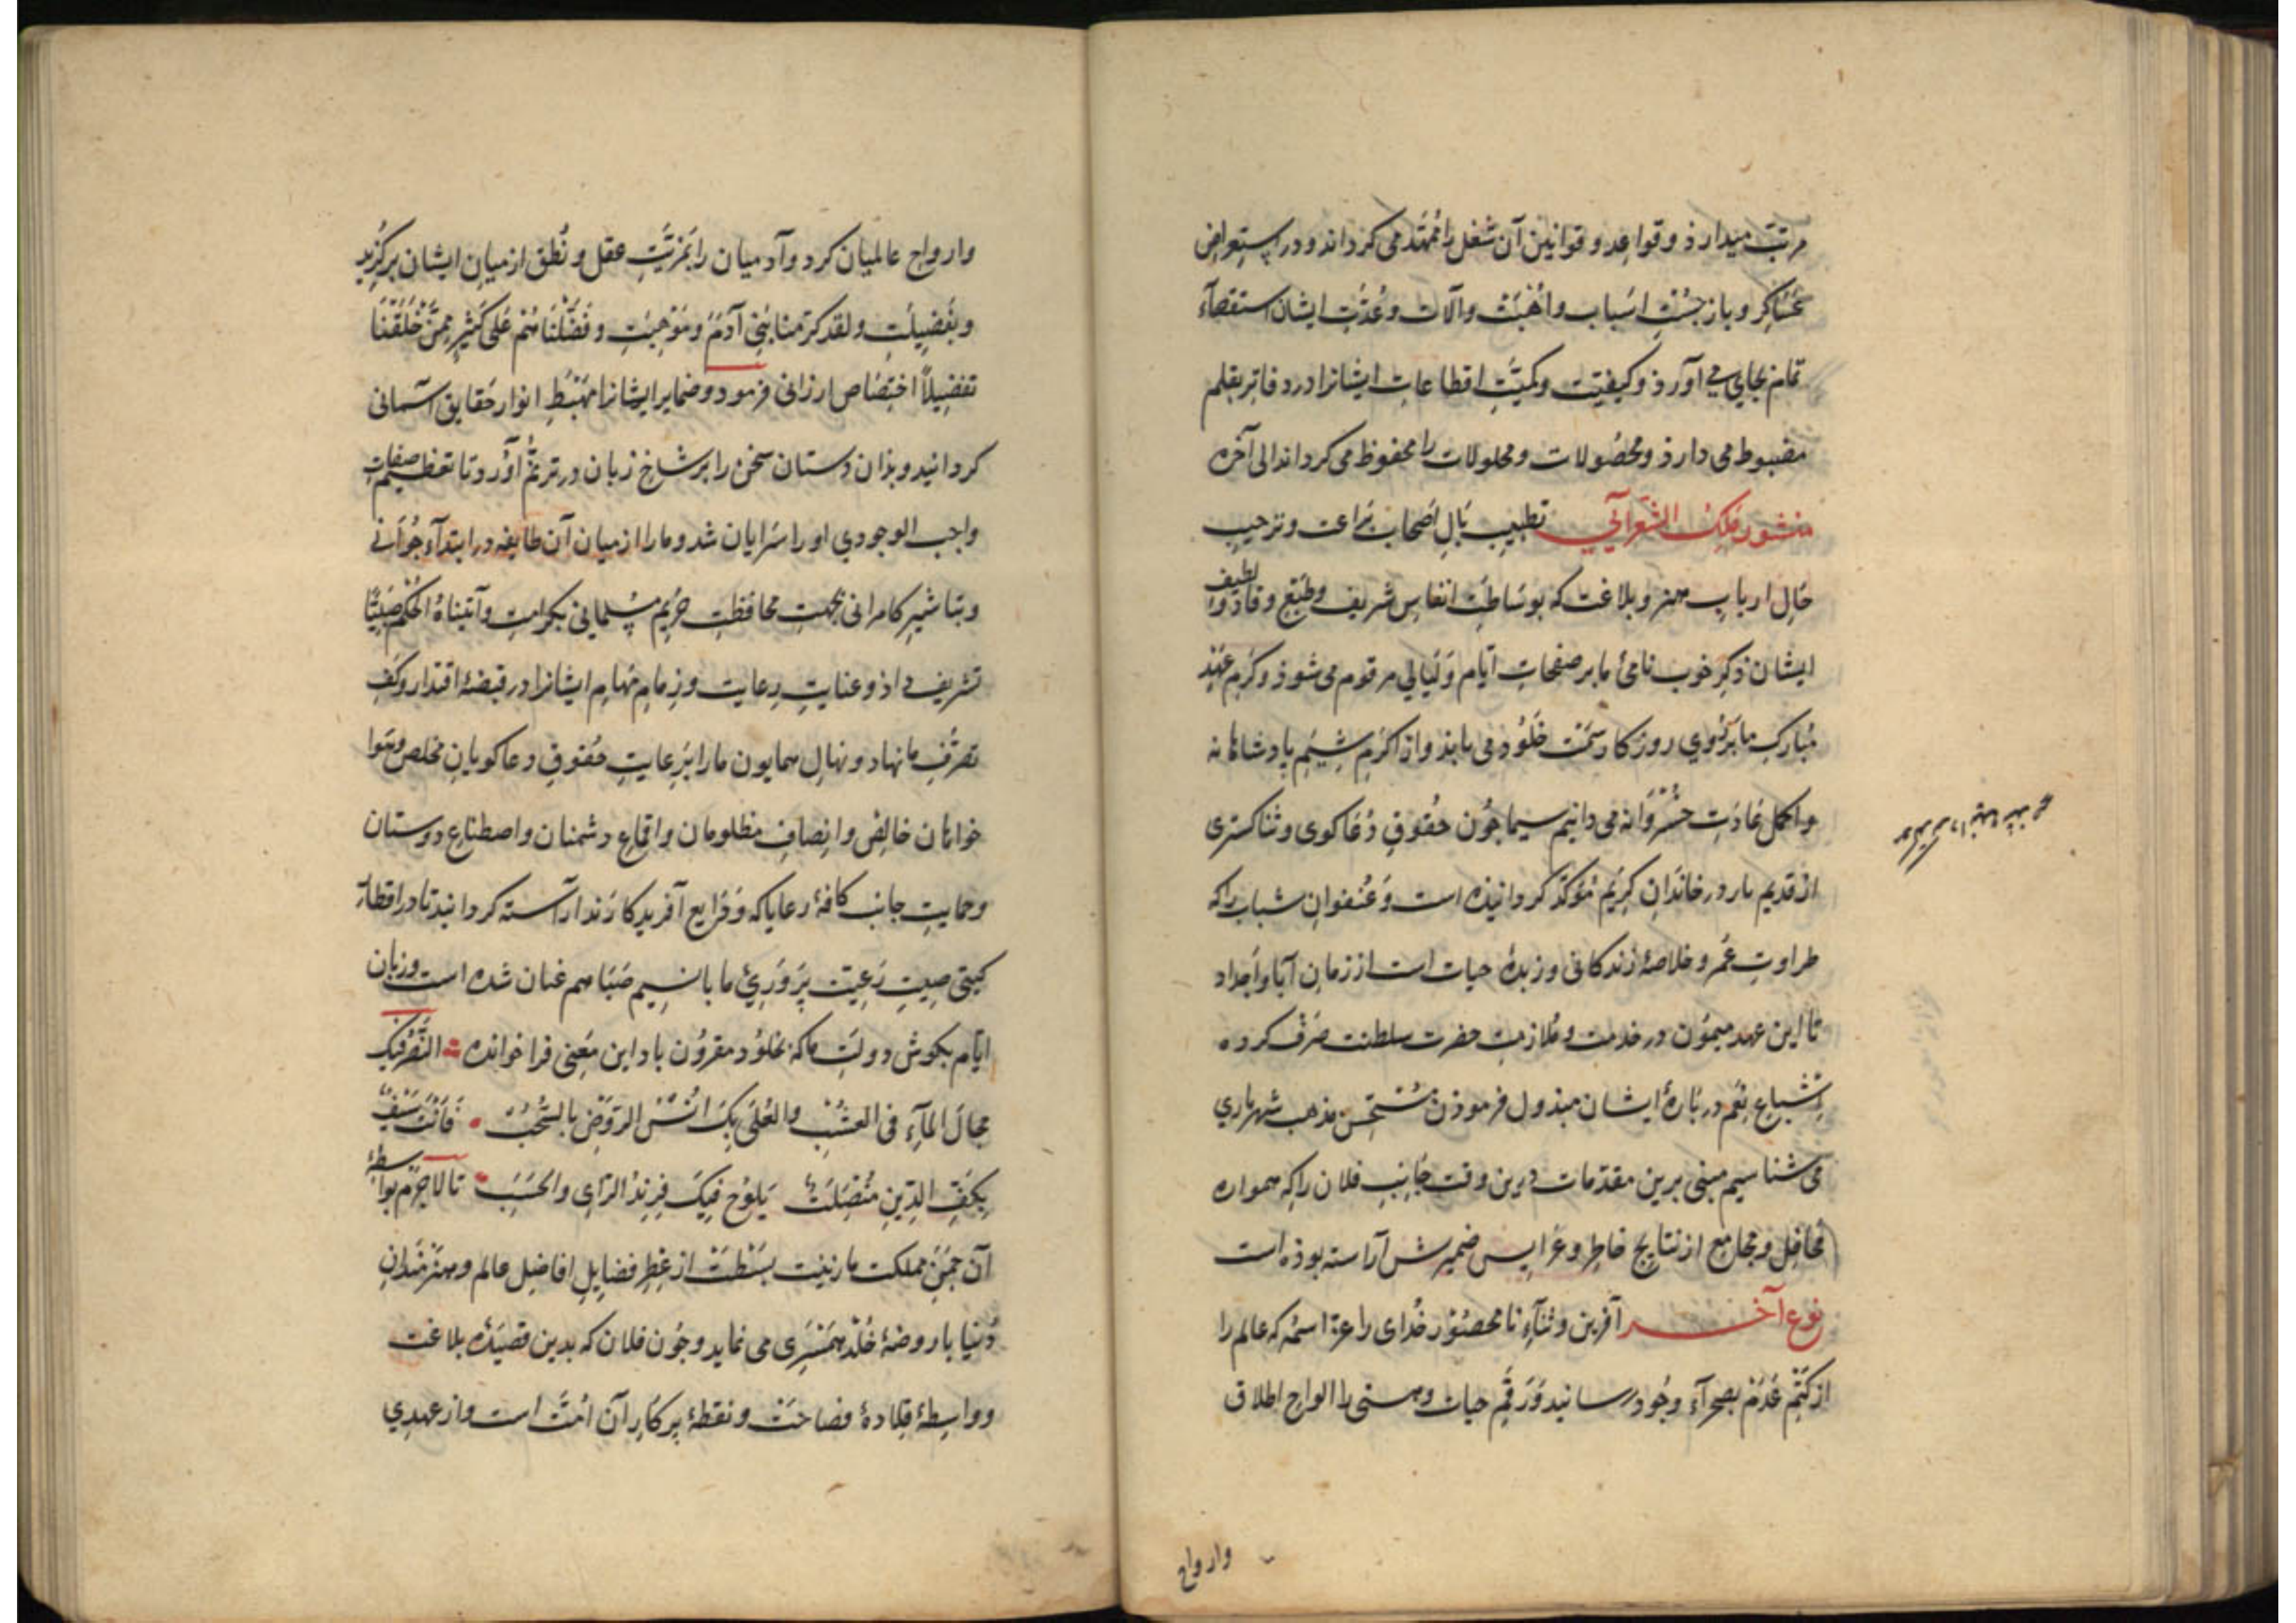 مرتب میدارذ و قواعد و قوانین آن شغل را ممهّد می کرداند و در استعراض
عساکر و باز جست اسباب و اهبت و آلات و عدّت ایشان استقصآء
تمام بجای می آورذ و کیفیّت و کمیّت اقطاعات ایشانرا در دفاتر بقلم
مضبوط می دارذ و محصولات و محلولات را محفوظ می کرداند الی آخره
منشور ملک الشعرائی تطییب بال اصحاب براعت و ترحیب
حال ارباب هنر و بلاغت که بوساطت انفاس شریف و طبع وقاد و لطیف
ایشان ذکر خوب نامی ما بر صفحات ایّام و لیالی مرقوم می شوذ و کرم عهد
مبارک ما بر روی روزکار سمت خلود می یابذ و از اکرم شیم پادشاهانه
و اکمل عادت خسروانه می دانیم سیما جون حقوق دعاکوی و ثناکستری
از قدیم باز در خاندان کریم مؤکّد کردانیذه است و عنفوان شباب را که
طراوت عمر و خلاصهٔ زندکانی و زبدهٔ حیات است از زمان آبا و اجداد
تا این عهد میمون در خدمت و ملازمت حضرت سلطنت صرف کرده
اشباع نعم در بارهٔ ایشان مبذول فرموذن مستحسن مذهب شهریاری
می شناسیم مبنی برین مقدّمات درین وقت جانب فلان را که همواره
محافل و مجامع از نتایج خاطر و عرایس ضمیرش آراسته بوذه است
نوع آخر آفرین و ثنآء نامحصور خدای را عزّ اسمه که عالم را
از کتم عدم بصحرآء وجود رسانید و رقم حیات و هستی بر الواح اطلاق
وارواح
وارواح عالمیان کرد و آدمیان را بمزیّت عقل و نطق از میان ایشان برکزید
و بفضیلت و لقد کرّمنا بنی آدم و موهبت و فضّلناهم علی کثیر ممّن خلقنا
تفضیلاً اختصاص ارزانی فرمود و ضمایر ایشانرا مهبط انوار حقایق آسمانی
کردانید و بذان دستان سخن را بر شاخ زبان در ترنّم آورد تا بتعظیم صفات
واجب الوجودی او را سرایان شد و ما را از میان آن طایفه در ابتدآء جوانی
و تباشیر کامرانی بجهت محافظت حریم مسلمانی بکرامت و آتیناه الحکم صبیّاً
تشریف داذ و عنایت رعایت و زمام مهام ایشانرا در قبضهٔ اقتدار و کف
تصرّف ما نهاد و نهال همایون ما را برعایت حقوق دعاکویان مخلص و هوا
خواهان خالص و انصاف مظلومان و اقماع دشمنان و اصطناع دوستان
و حمایت جانب کافهٔ رعایا که ودایع آفریدکارند آراسته کردانید تا در اقطار
کیتی صیت رعیّت پروری ما با نسیم صبا هم عنان شده است و زبان
ایّام بکوش دولت ما که بخلود مقرون باد این معنی فرا خوانده النّصر فیک
مجال المآء فی العشب والعلی بک انس الروض بالسّحب فانت سیف
بکفّ الدین منصلت یلوح فیک فرند الرای والحسب تا لاجرم بواسطهٔ
آن جمن مملکت ما زینت بسطت از عطر فضایل افاضل عالم و هنرمندان
دنیا با روضهٔ خلد همسری می نماید و جون فلان که بدین قصیدهٔ بلاغت
و واسطهٔ قلادهٔ فصاحت و نقطهٔ پرکار آن امّت است و از عهدی